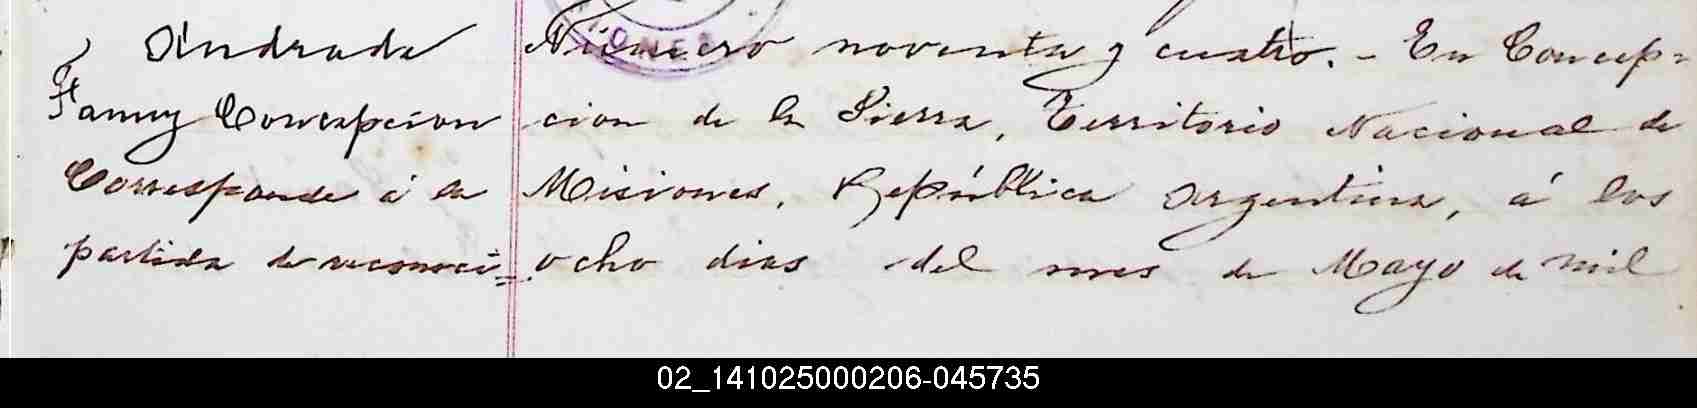 Andrada
Fanny Concepcion
Corresponde á la
partida de reconoci=
Número noventa y cuatro. - En Concep=
cion de la Sierra, Territorio Nacional de
Misiones, República Argentina, á los
ocho dias del mes de Mayo de mil
02_141025000206-045735